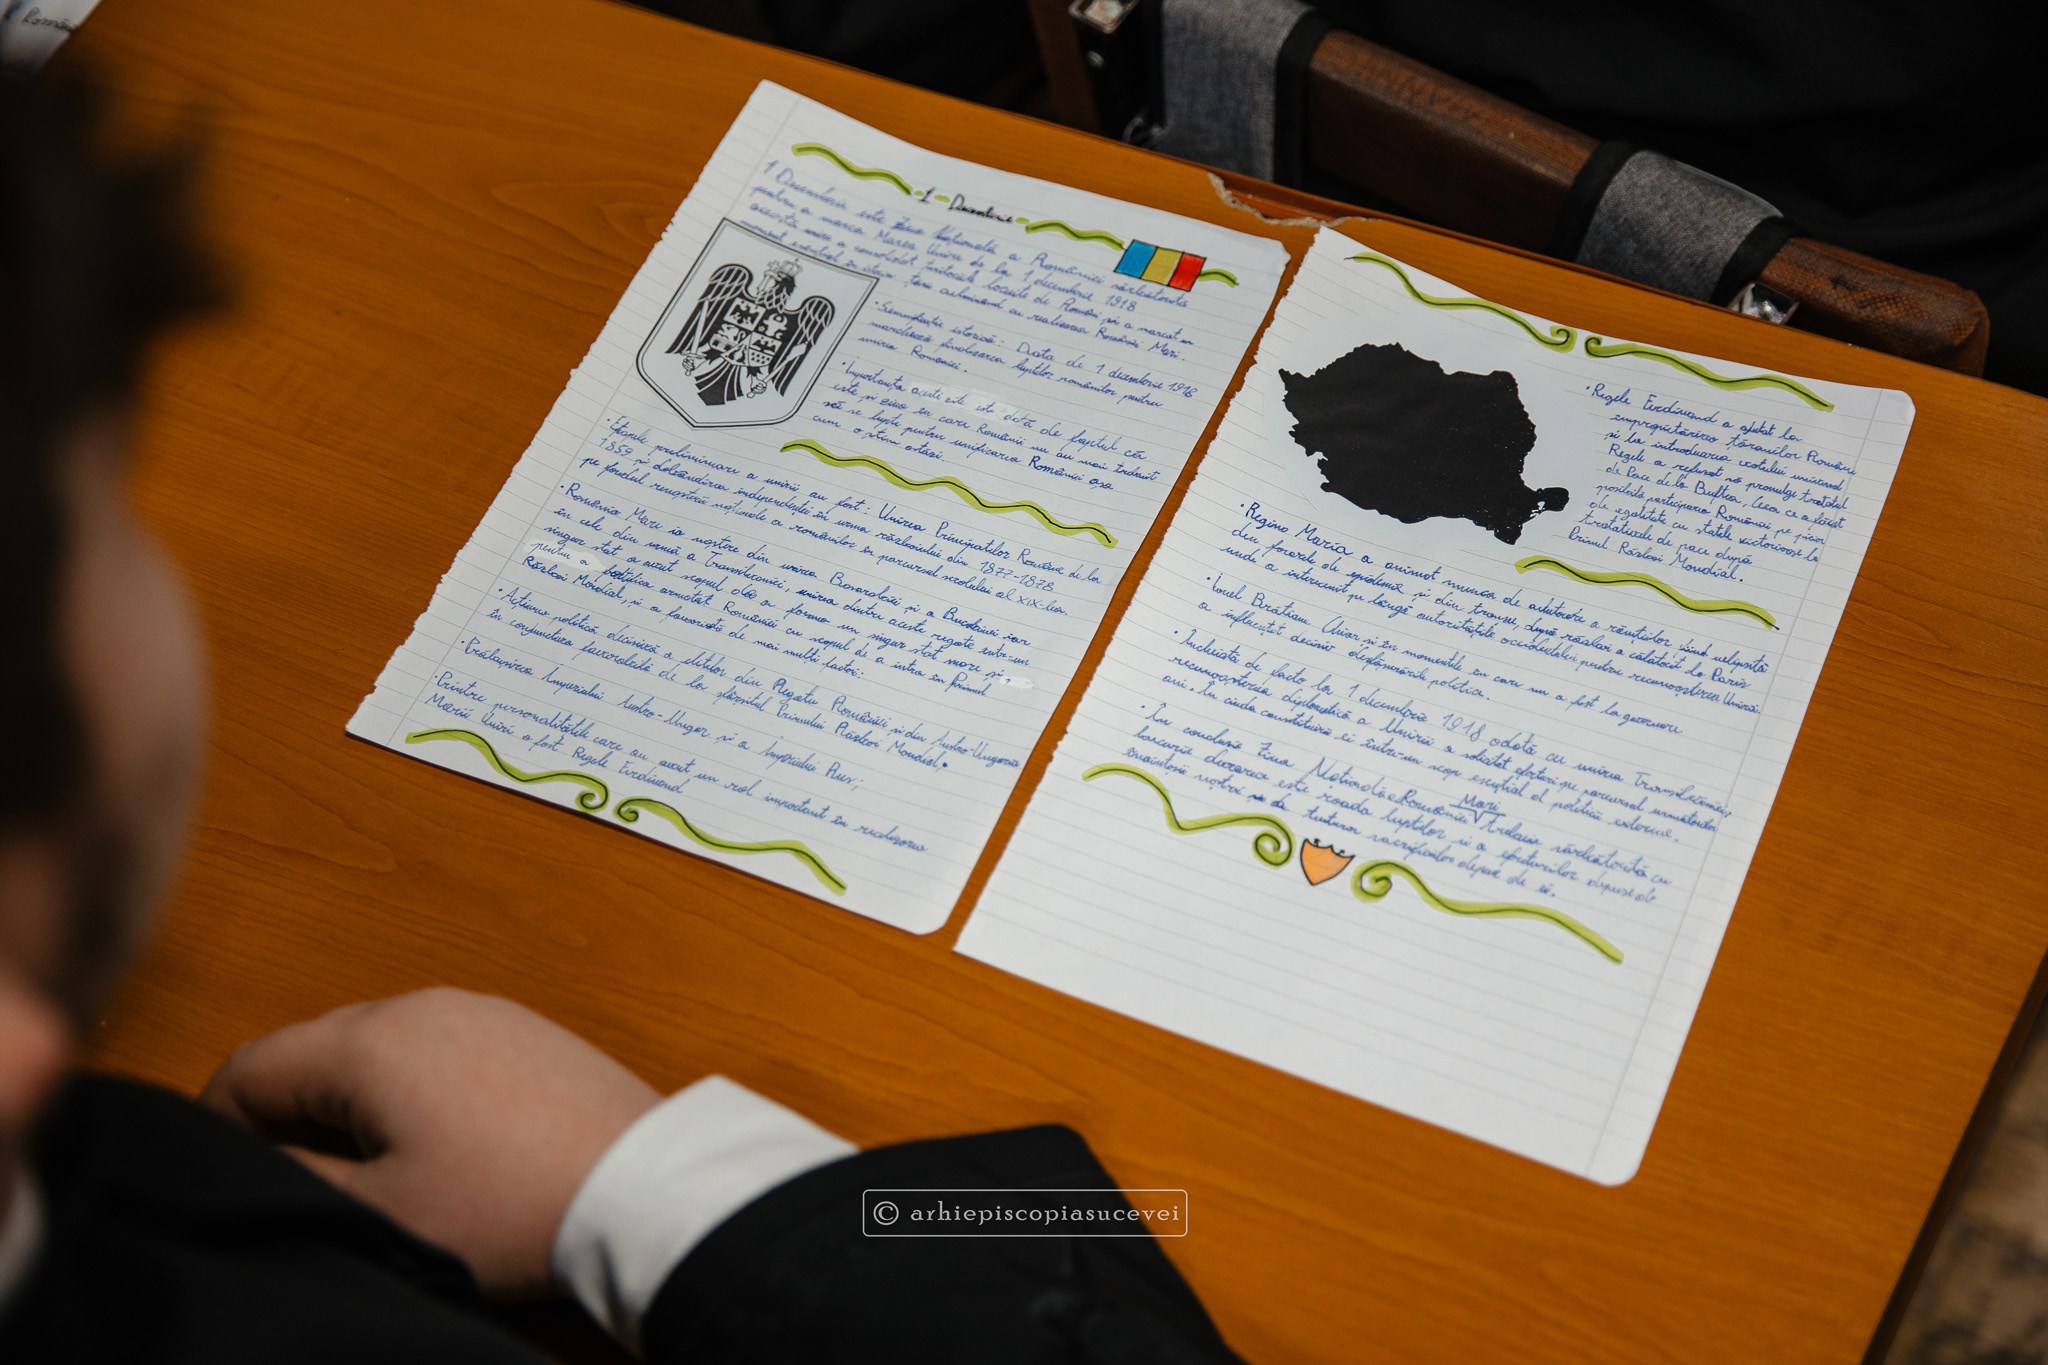 1 Decembrie
1 Decembrie este Ziua Națională a României sărbătorită
pentru a marca Marea Unire de la 1 decembrie 1918
această unire a consolidat teritoriile locuite de Români și a marcat un
moment esențial în țară culminând cu realizarea României Mari.
• Semnificație istorică: Data de 1 decembrie 1918
marchează finalizarea luptelor românilor pentru
unirea României.
• Importanța acestei zile este dată de faptul că
este și ziua în care Românii nu au mai trebuit
să se lupte pentru unificarea României așa
cum o știm astăzi.
• Etapele preliminare a unirii au fost: Unirea Principatelor Române de la
1859 și dobândirea independenței în urma războiului din 1877-1878
pe fondul renașterii naționale a românilor în parcursul secolului al XIX-lea.
• România Mare ia naștere din unirea Basarabiei și a Bucovinei iar
în cele din urmă a Transilvaniei, unirea dintre aceste regate într-un
singur stat a avut scopul de a forma un singur stat mare și,
pentru a armatei României cu scopul de a intra în Primul
Război Mondial, și a favorizată de mai mulți factori:
• Acțiunea politică decisivă a elitelor din Regatul României și din Austro-Ungaria
în conjunctura favorabilă de la sfârșitul Primului Război Mondial.
• Prăbușirea Imperiului Austro-Ungar și a Imperiului Rus;
• Printre personalitățile care au avut un rol important în realizarea
Marii Uniri a fost Regele Ferdinand
• Regele Ferdinand a ajutat la
împroprietărirea țăranilor Români
și la introducerea votului universal
Regele a refuzat să promulge tratatul
de Pace de la Buftea, ceea ce a făcut
posibilă participarea României pe picior
de egalitate cu statele victorioase la
tratatele de pace după
Primul Război Mondial.
• Regina Maria a animat munca de ajutorare a răniților, fiind nelipsită
din focarele de epidemii și din tranșee, după război a călătorit la Paris
unde a intervenit pe lângă autoritățile occidentale pentru recunoașterea Unirii
• Ionel Brătianu chiar și în momentele în care nu a fost la guvernare
a influențat decisiv desfășurările politice.
• Încheiată de facto la 1 decembrie 1918 odată cu unirea Transilvaniei,
recunoașterea diplomatică a Unirii a solicitat eforturi pe parcursul următorilor
ani. În ciuda constituirii ei într-un scop esențial al politicii externe.
• În concluzie Ziua Națională a României Mari trebuie sărbătorită cu
bucurie deoarece este roada luptelor și a eforturilor depuse de
înaintașii noștri și de tuturor sacrificiilor depuse de ei.
© arhiepiscopiasucevei